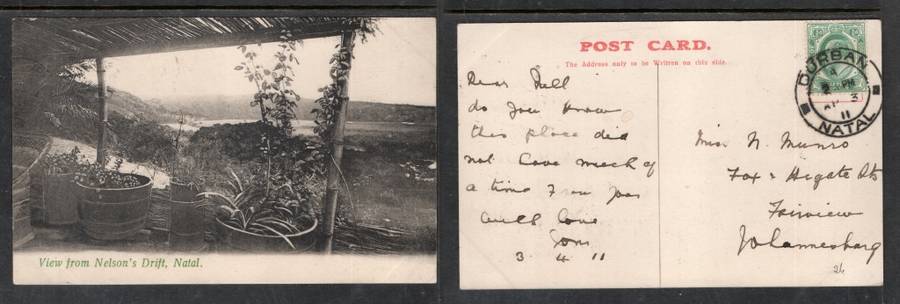 View from Nelson's Drift, Natal.
POST CARD.
The Address only to be Written on this side.
DURBAN
PM
3
11
NATAL
Dear Nell
do you know
this place did
not have much of
a time
love
3 4 11
Miss N. Munro
Fox & Higate Sts
Fairview
Johannesburg